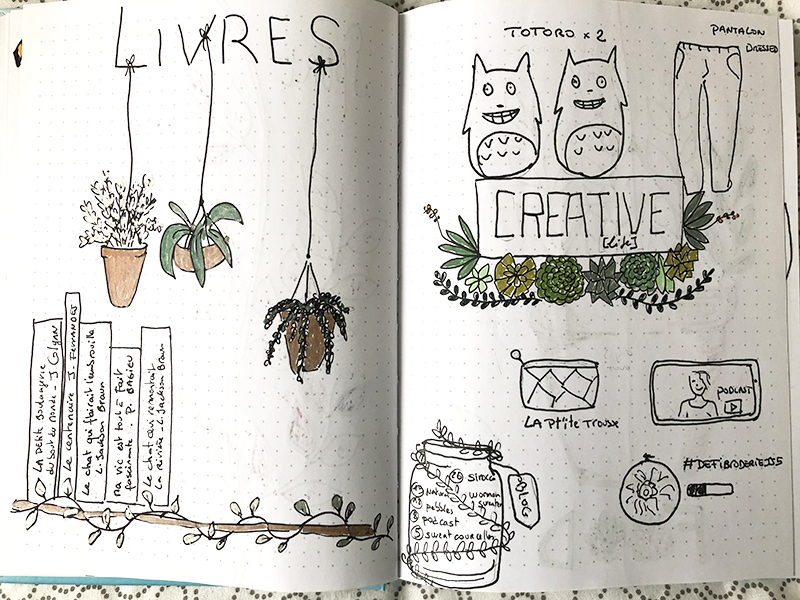 LIVRES
LA PETITE BOULANGERIE
du bout du monde - J Colgan
Le centenaire J. FERNANDES
Le chat qui flairait l'embrouille
L. Jackson Braun
Ma vie est tout à fait
fascinante - P. BAGIEU
Le chat qui remontait
la rivière - L. Jackson Braun
TOTORO x 2
PANTALON
DRESSED
CREATIVE
[Life]
PODCAST
LA Ptite TROUSSE
#DEFIBRODERIEJS5
BLOG
20 sirocco
woman
sweater
pebbles
podcast
5 sweat courcelles